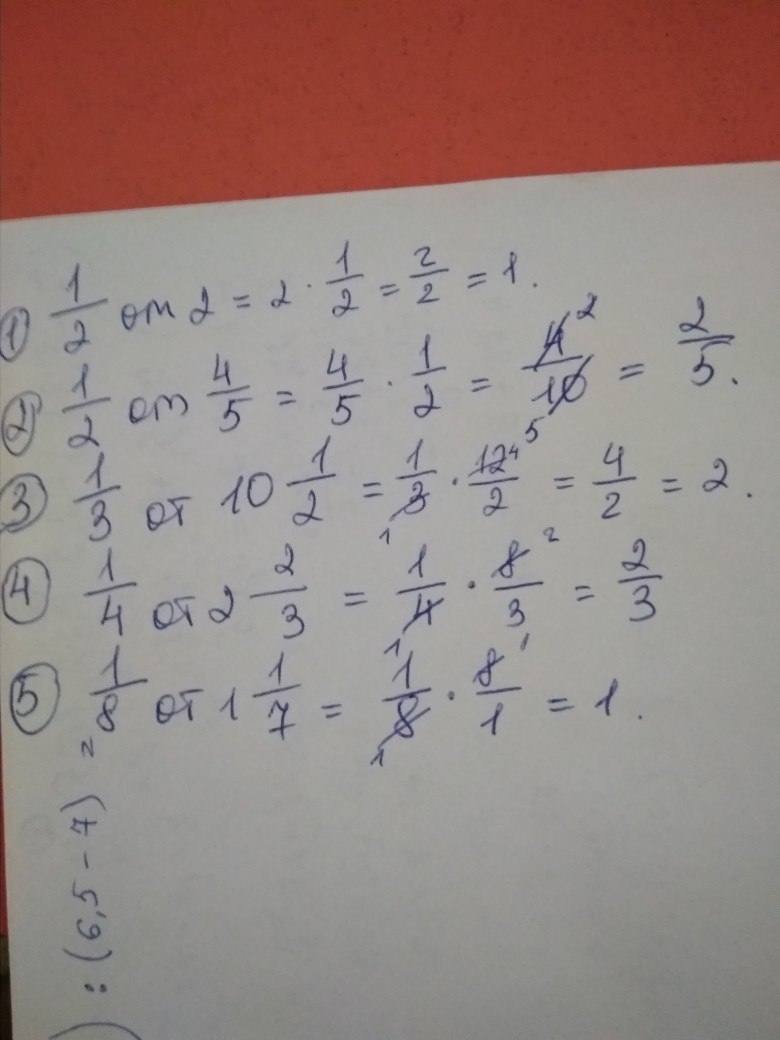 ① 1/2 от 2 = 2 · 1/2 = 2/2 = 1.
② 1/2 от 4/5 = 4/5 · 1/2 = 4/10 2 5 = 2/5.
③ 1/3 от 10 1/2 = 1/3 1 · 12/2 4 = 4/2 = 2.
④ 1/4 от 2 2/3 = 1/4 · 8/3 2 = 2/3
⑤ 1/8 от 1 1/7 = 1/8 1 1 · 8/1 1 = 1.
) : (6,5 - 7) =